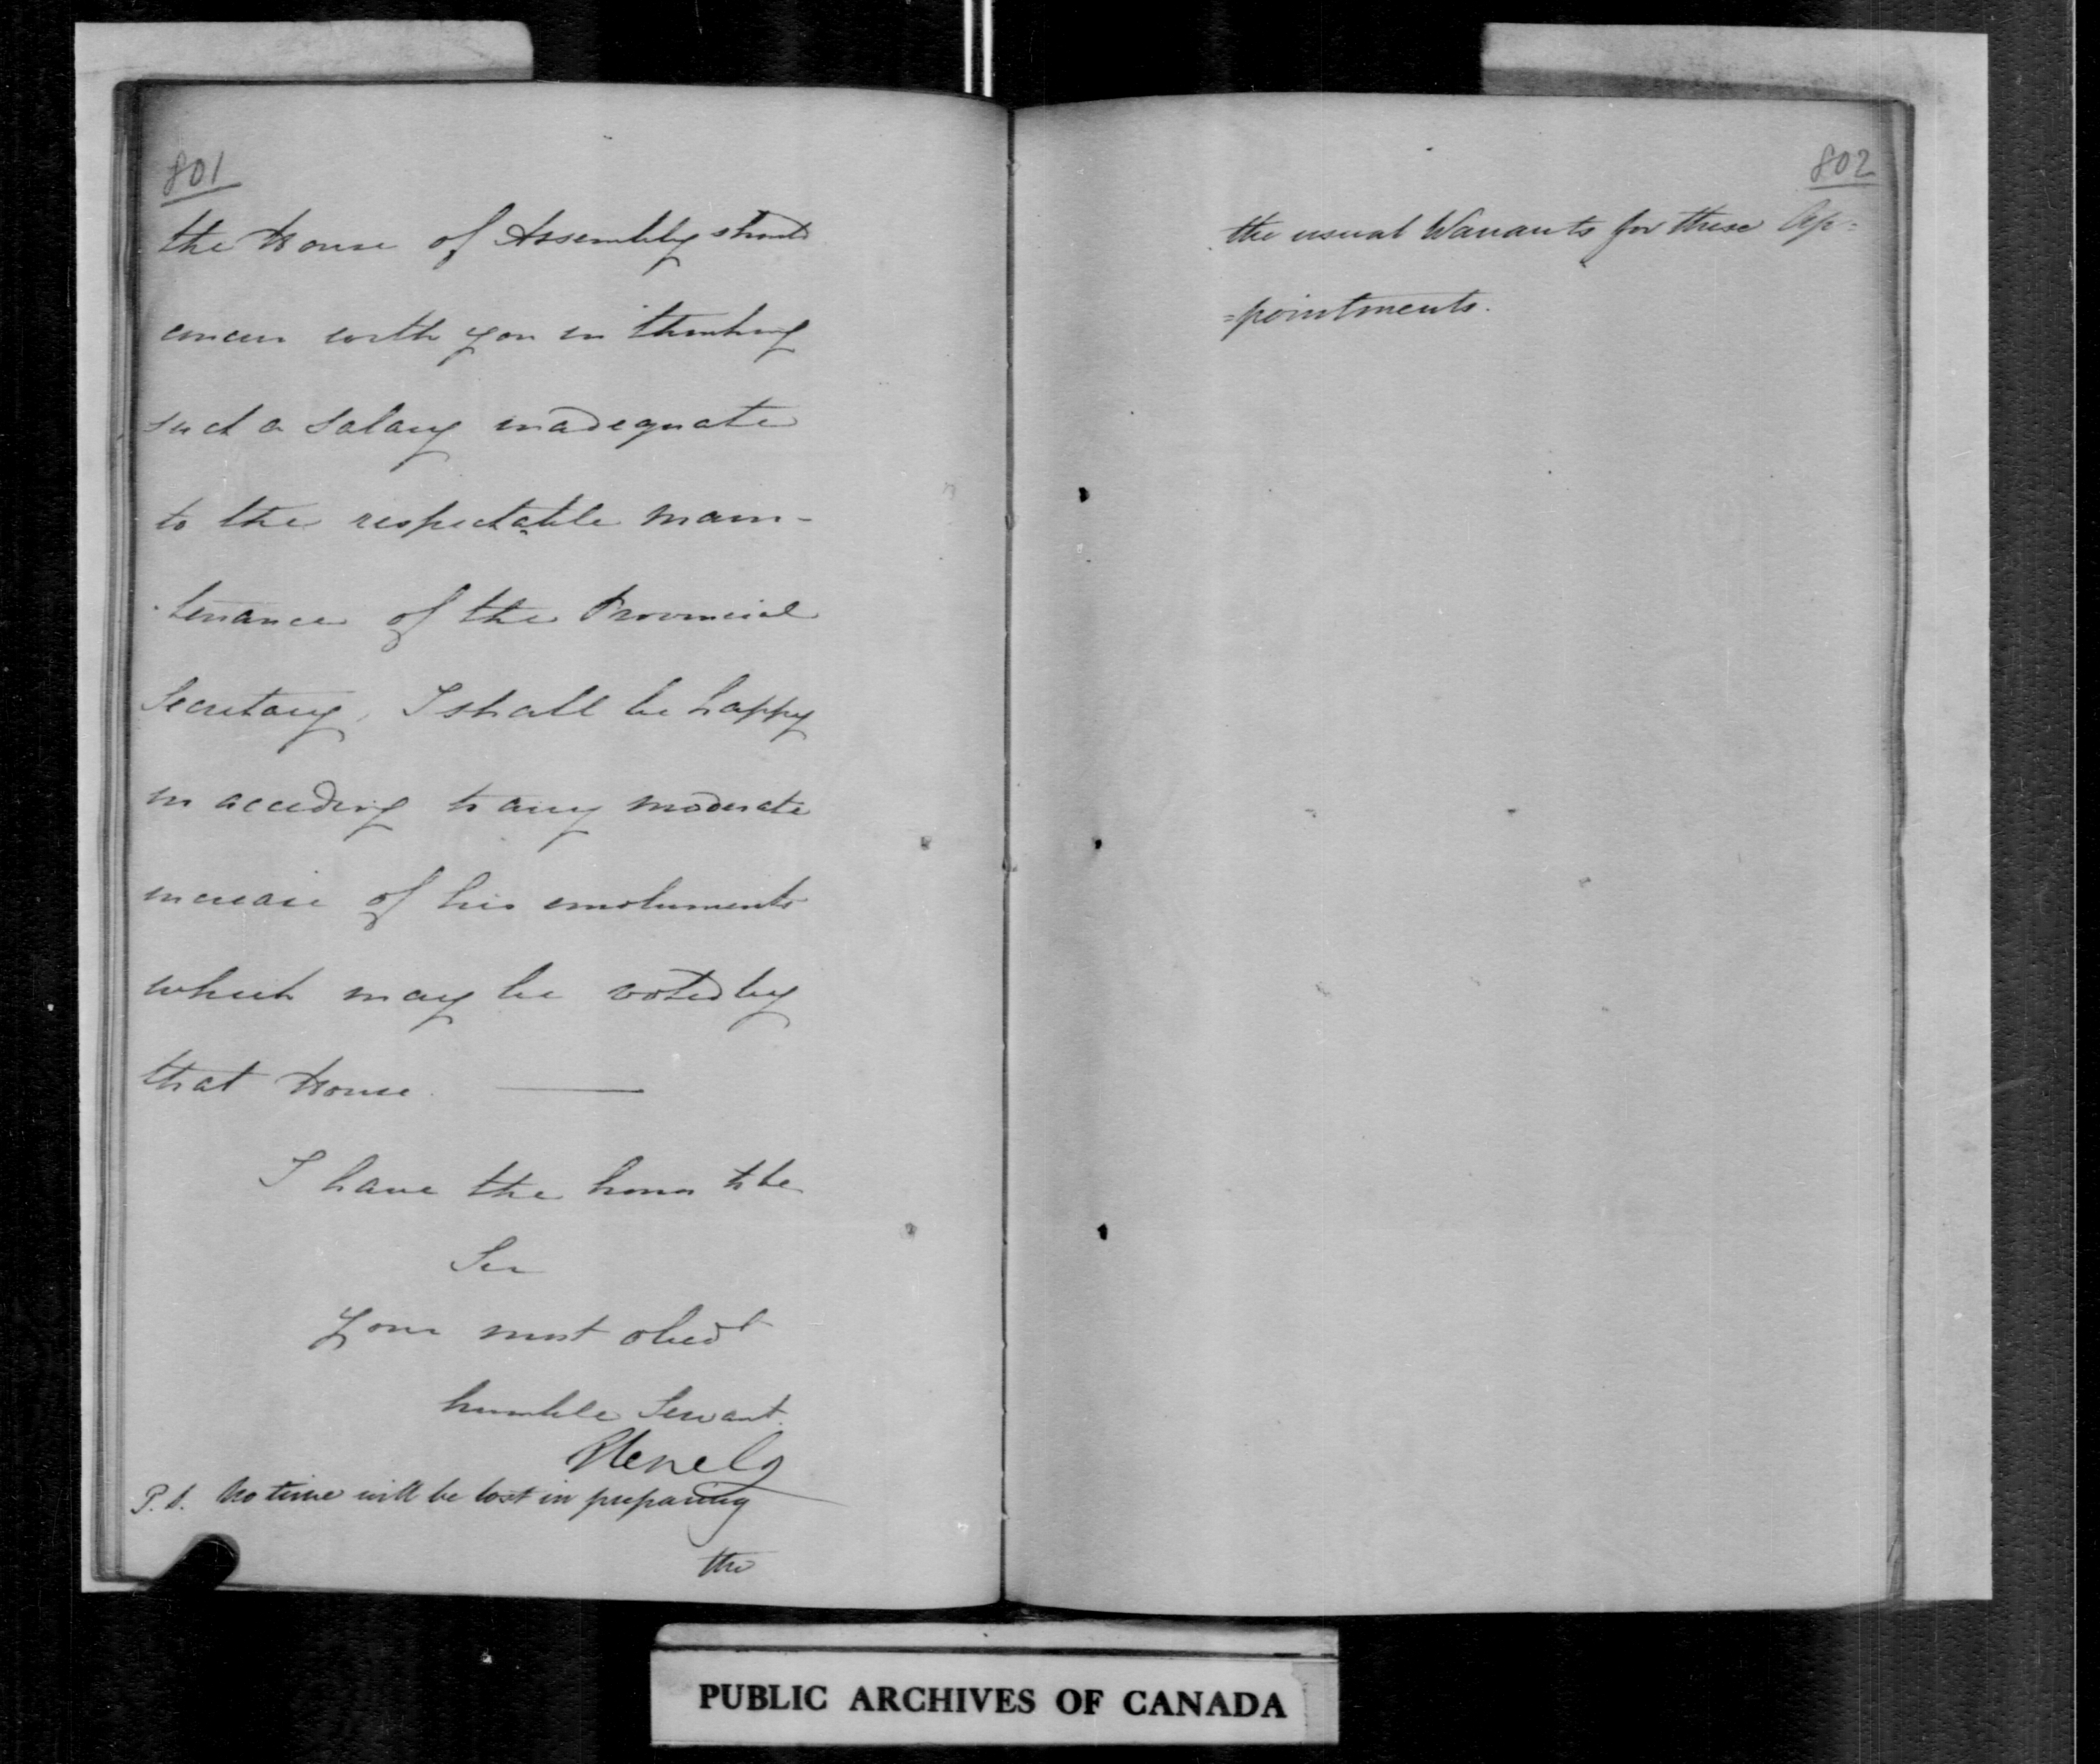 801
the House of Assembly should
concur with you in thinking
such a salary inadequate
to the respectable main-
tenance of the Provincial
Secretary, I shall be happy
in acceding to any moderate
increase of his emoluments
which may be voted by
that House.
I have the honor to be
Sir
Your most obedt
humble Servant.
Glenelg
P.S. No time will be lost in preparing
the
802
the usual Warrants for these Ap=
=pointments.
PUBLIC ARCHIVES OF CANADA